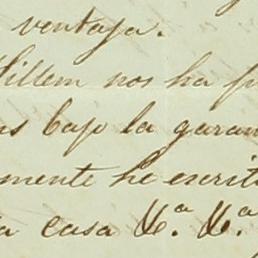 ventaja.
Willem nos ha
bajo la garan
mente he escrit
a casa